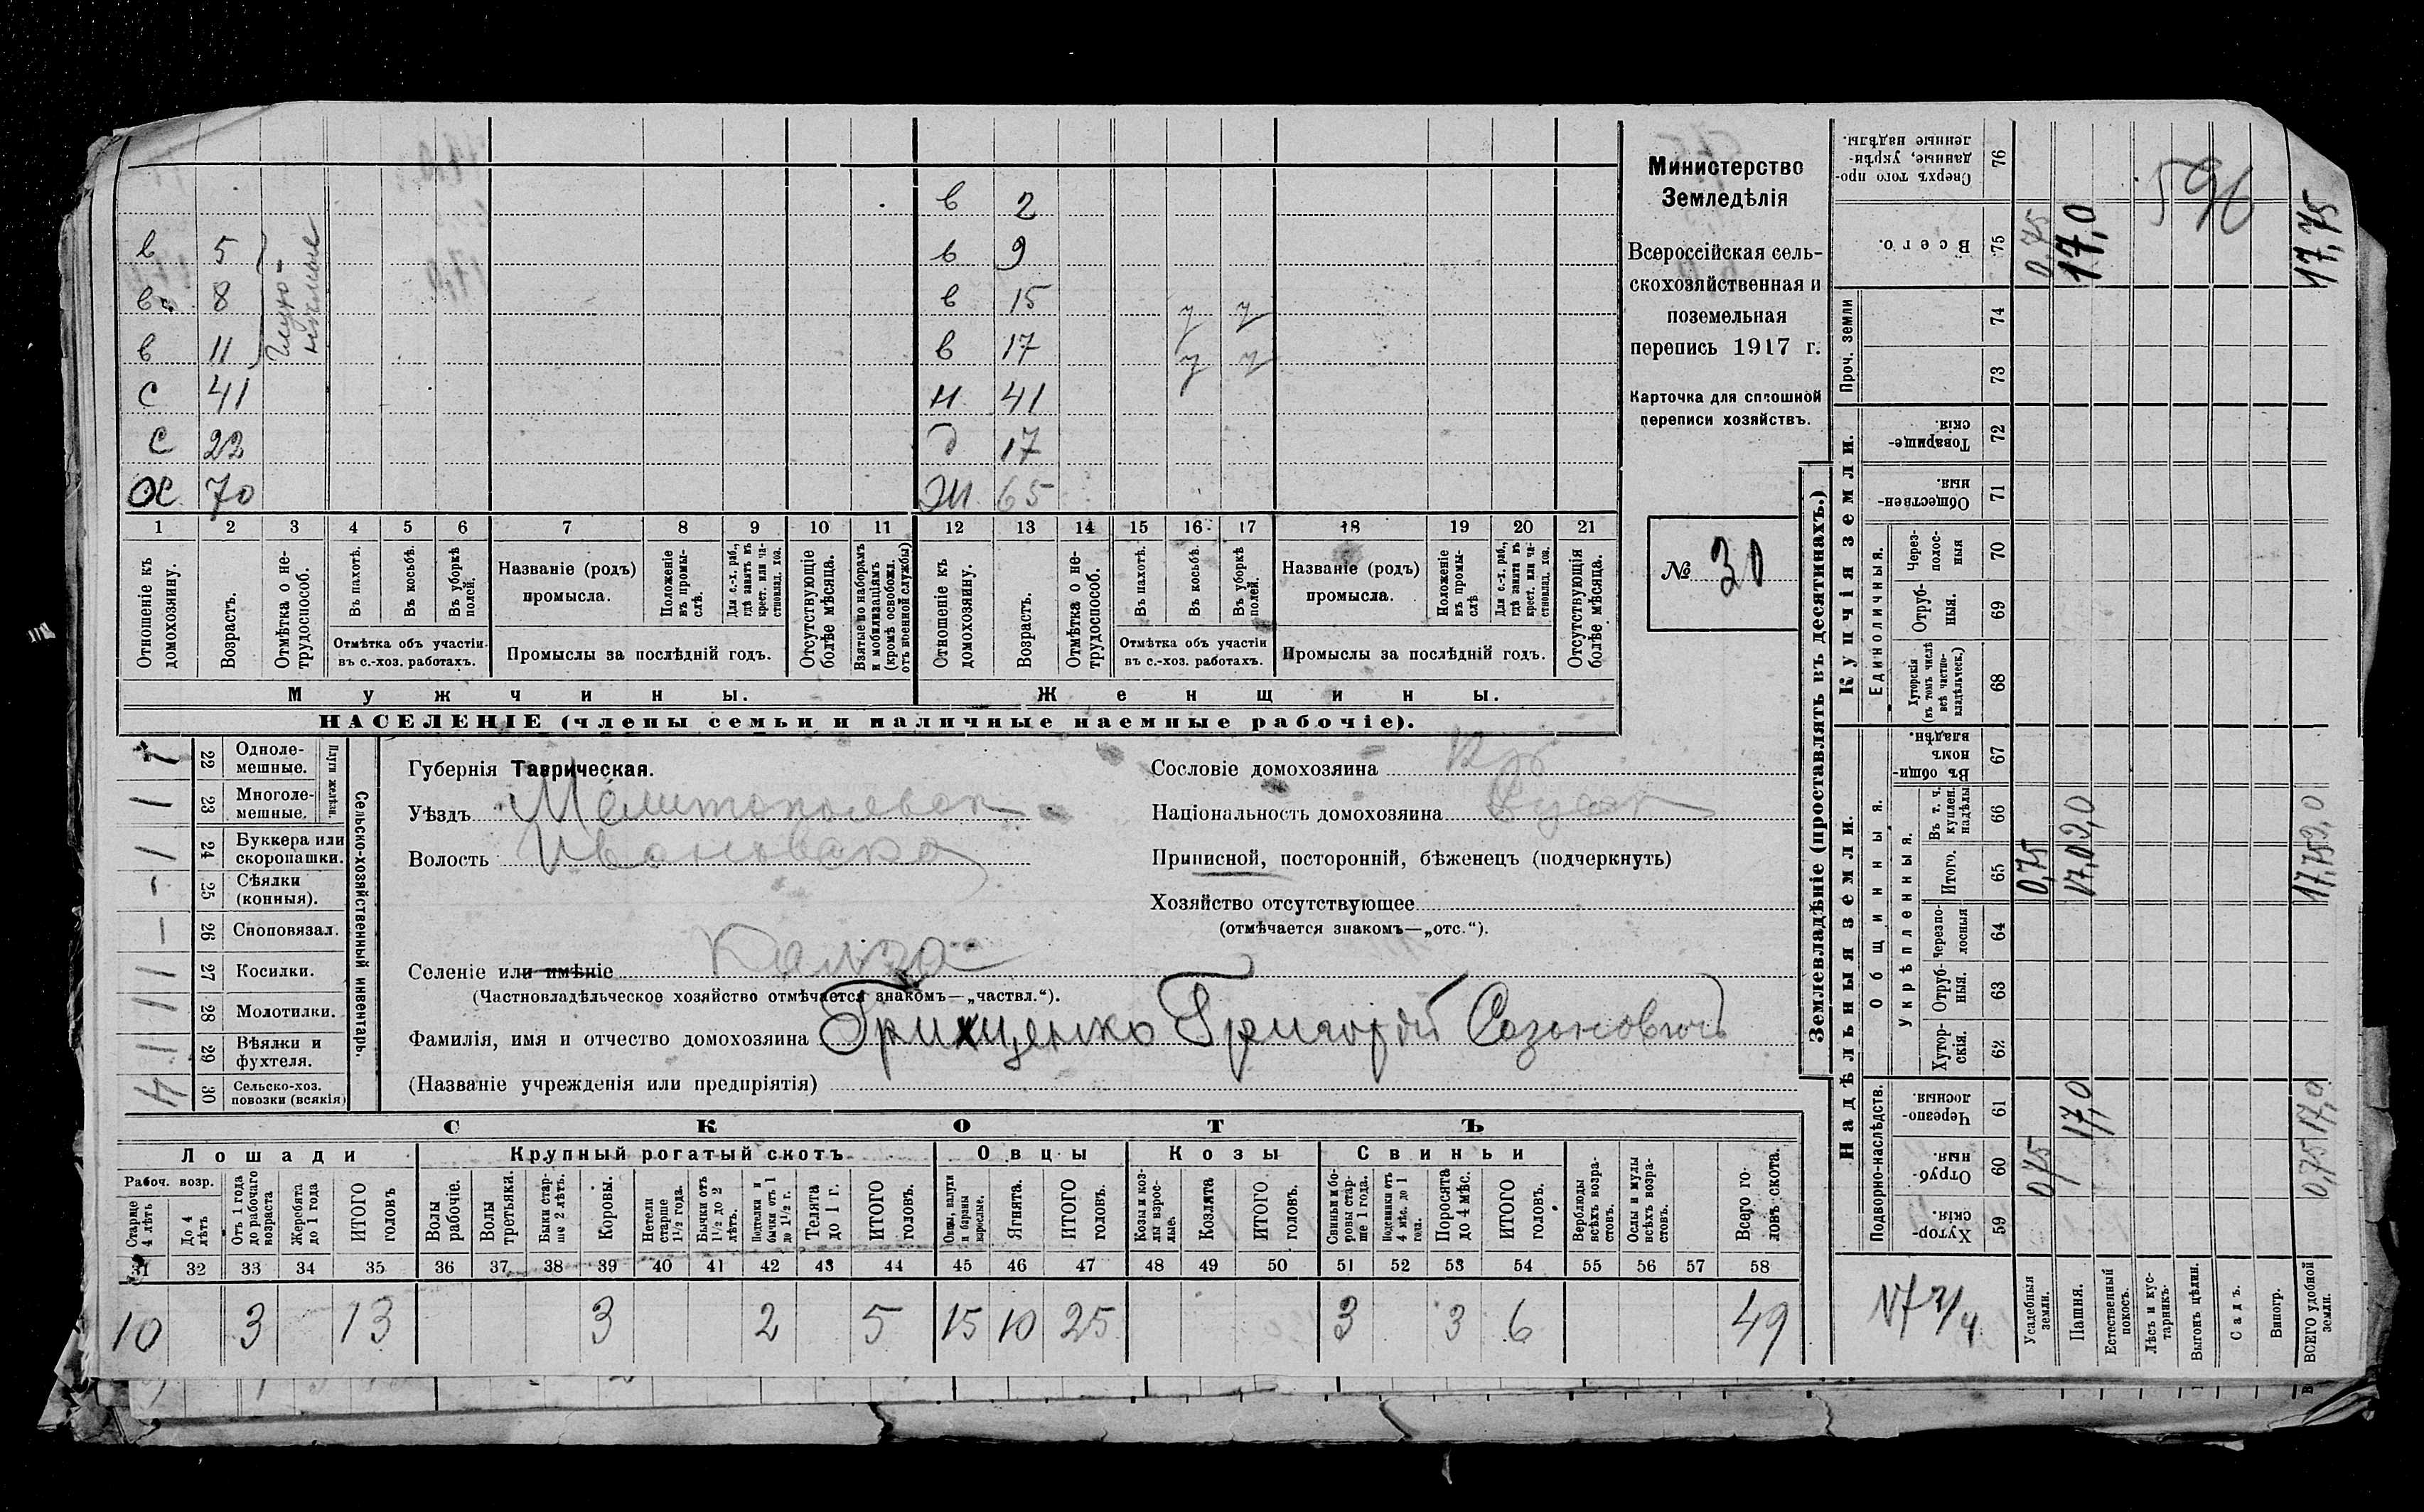 в 2
в 5 в 9
в 8 в 15 у у
в 11 в 17 у у
Глухо-
немые
с 41 н 41
с 22 д 17
ох 70 ж 65
1 2 3 4 5 6 7 8 9 10 11 12 13 14 15 16 17 18 19 20 21
Отношеніе къ домохозяину.
Возрастъ.
Отмѣтка о не-
трудоспособ.
Въ пахотѣ.
Въ косьбѣ.
Въ уборкѣ
полей.
Отмѣтка объ участіи
въ с.-хоз. работахъ.
Названіе (родъ)
промысла.
Положеніе
въ промы-
слѣ.
Для с.-х. раб.,
гдѣ занятъ въ
крест. или ча-
стновлад. хоз.
Промыслы за послѣдній годъ.
Отсутствующіе
болѣе мѣсяца.
Взятые по наборамъ
и мобилизаціямъ
(кромѣ освобожд.
отъ военной службы)
Отношеніе къ
домохозяину.
Возрастъ.
Отмѣтка о не-
трудоспособ.
Въ пахотѣ.
Въ косьбѣ.
Въ уборкѣ
полей.
Отмѣтка объ участіи
въ с.-хоз. работахъ.
Названіе (родъ)
промысла.
Положеніе
въ промы-
слѣ
Для с.-х. раб.,
гдѣ занята въ
крест. или ча-
стновлад. хоз.
Промыслы за послѣдній годъ.
Отсутствующія
болѣе мѣсяца.
Мужчины.
Женщины.
НАСЕЛЕНІЕ (члены семьи и наличные наемные рабочіе).
Министерство
Земледѣлія
Всероссійская сель-
скохозяйственная и
поземельная
перепись 1917 г.
Карточка для сплошной
переписи хозяйствъ.
№ 30
22 Одноле-
мешные.
1 23 Многоле-
мешные.
Плуги желѣзн.
1 24 Буккера или
скоропашки.
- 25 Сѣялки
(конныя).
1 26 Сноповязал.
1 27 Косилки.
1 28 Молотилки.
1 29 Вѣялки и
фухтеля.
4 30 Сельско-хоз.
повозки (всякія)
Сельско-хозяйственный инвентарь.
Губернія Таврическая.
Уѣздъ Мелитопольск
Волость Ивановская
Селеніе или имѣніе
(Частновладѣльческое хозяйство отмѣчается знакомъ—„частвл.“).
Фамилія, имя и отчество домохозяина Грищенко Григорій Сазоновичъ
(Названіе учрежденія или предпріятія)
Сословіе домохозяина Кр
Національность домохозяина Русск
Приписной, посторонній, бѣженецъ (подчеркнуть)
Хозяйство отсутствующее
(отмѣчается знакомъ—„отс.“).
СКОТЪ
Лошади
Крупный рогатый скотъ
Овцы
Козы
Свиньи
Рабоч. возр.
Старше
4 лѣтъ
До 4
лѣтъ
Отъ 1 года
до рабочаго
возраста
Жеребята
до 1 года
ИТОГО
головъ
Волы
рабочіе.
Волы
третьяки.
Быки стар-
ше 2 лѣтъ.
Коровы.
Нетели
старше
1½ года.
Бычки отъ
1½ до 2
лѣтъ.
Подтелки и
бычки отъ 1
до 1½ г.
Телята
до 1 г.
ИТОГО
головъ.
Овцы, валухи
и бараны
взрослые.
Ягнята.
ИТОГО
головъ.
Козы и коз-
лы взрос-
лые.
Козлята
ИТОГО
головъ.
Свиньи и бо-
ровы стар-
ше 1 года.
Подсвинки отъ
4 мѣс. до 1
года.
Поросята
до 4 мѣс.
ИТОГО
головъ.
Верблюды
всѣхъ возра-
стовъ.
Ослы и мулы
всѣхъ возра-
стовъ.
Всего го-
ловъ скота.
31 32 33 34 35 36 37 38 39 40 41 42 43 44 45 46 47 48 49 50 51 52 53 54 55 56 57 58
10 3 13 3 2 5 15 10 25 3 3 6 49
Землевладѣніе (проставлять въ десятинахъ.)
Купчія земли.
Надѣльныя земли.
Проч. земли
Единоличныя.
Общинныя.
Укрѣпленныя.
Подворно-наслѣдств.
Сверхъ того про-
данные, укрѣп-
ленные надѣлы.
76
596
Всего.
75 0,75 17,0 17,75
74
73
Товарище-
скія.
72
Обществен-
ныя.
71
Через-
полос-
ныя
70
Отруб-
ныя.
69
Хуторскія
(въ томъ числѣ
всѣ частно-
владѣльческ.)
68
Въ общин-
номъ
владѣн.
67
Въ т. ч.
куплен.
надѣлы
66
Итого.
65 0,75
Черезпо-
лосныя
64
Отруб-
ныя.
63
Хутор-
скія.
62
Черезпо-
лосныя.
61 17,0
Отруб-
ныя.
60 0,75
Хутор-
скія.
59
Усадебныя
земли.
Пашня.
Естественный
покосъ.
Лѣсъ и кус-
тарникъ.
Выгонъ цѣлин.
Садъ.
Виногр.
ВСЕГО удобной
земли.